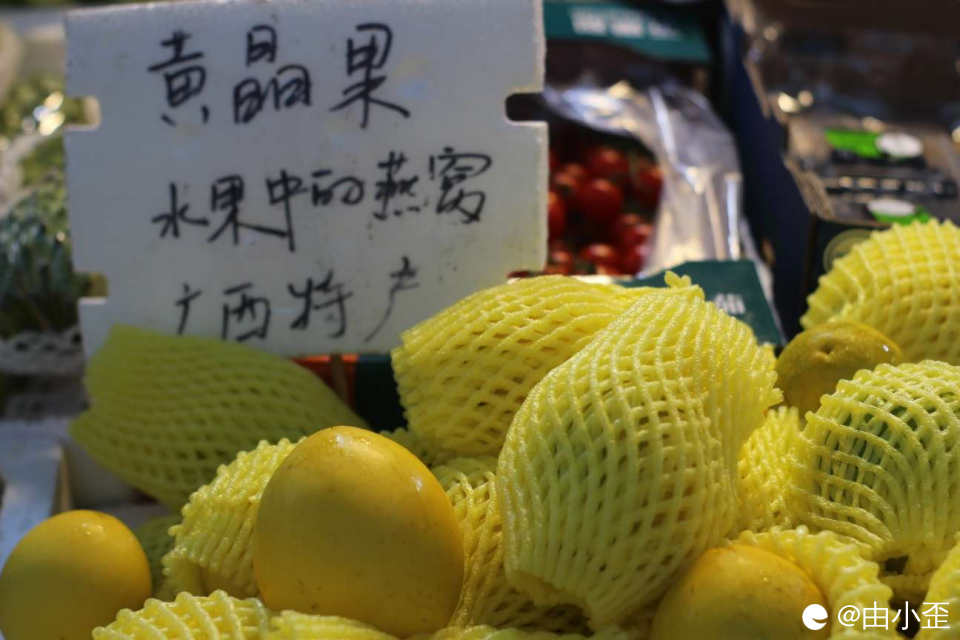 黄晶果
水果中的燕窝
广西特产
@由小歪